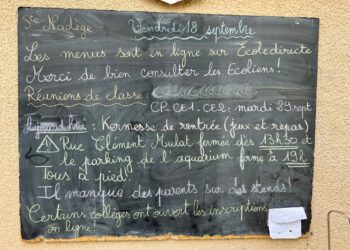 Ste Nadège
Vendredi 18 septembre
Les menus sont en ligne sur Ecoledirecte
Merci de bien consulter les Ecoliens !
Réunions de classe :
CP. CE1. CE2 : mardi 29 sept
Aujourd'hui : Kermesse de rentrée (jeux et repas)
Rue Clément Mulat fermée dès 13h30 et
le parking de l'aquarium fermé à 19h
Tous à pied !
Il manque des parents sur des stands !
Certains collèges ont ouvert les inscriptions
en ligne !